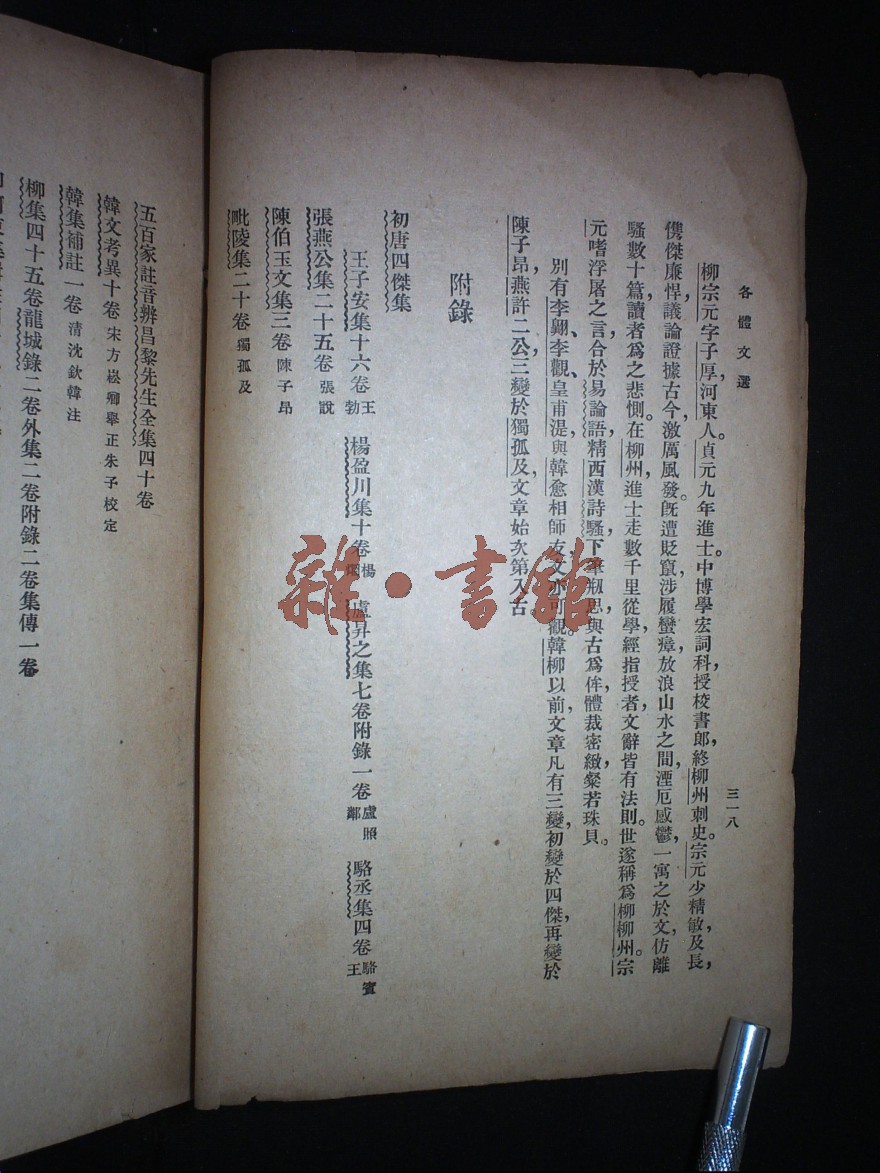 各體文選
三一八
柳宗元字子厚,河東人。貞元九年進士。中博學宏詞科,授校書郎,終柳州刺史。宗元少精敏,及長,
儁傑廉悍,議論證據古今,激厲風發。旣遭貶竄,涉履蠻瘴,放浪山水之間,湮厄感鬱,一寓之於文,仿離
騷數十篇,讀者爲之悲惻。在柳州,進士走數千里從學,經指授者,文辭皆有法則。世遂稱爲柳柳州。宗
元嗜浮屠之言,合於易論語,精西漢詩騷,下筆搆思,與古爲侔,體裁密緻,燦若珠貝。
別有李翺、李觀、皇甫湜,與韓愈相師友,文亦可觀。韓柳以前,文章凡有三變,初變於四傑,再變於
陳子昂,燕許二公,三變於獨孤及,文章始次第入古
附錄
初唐四傑集
王子安集十六卷王勃 楊盈川集十卷楊炯 盧昇之集七卷附錄一卷盧照鄰 駱丞集四卷駱賓王
張燕公集二十五卷張說
陳伯玉文集三卷陳子昂
毗陵集二十卷獨孤及
五百家註音辨昌黎先生全集四十卷
韓文考異十卷宋方崧卿舉正朱子校定
韓集補註一卷清沈欽韓注
柳集四十五卷龍城錄二卷外集二卷附錄二卷集傳一卷
雜·書館